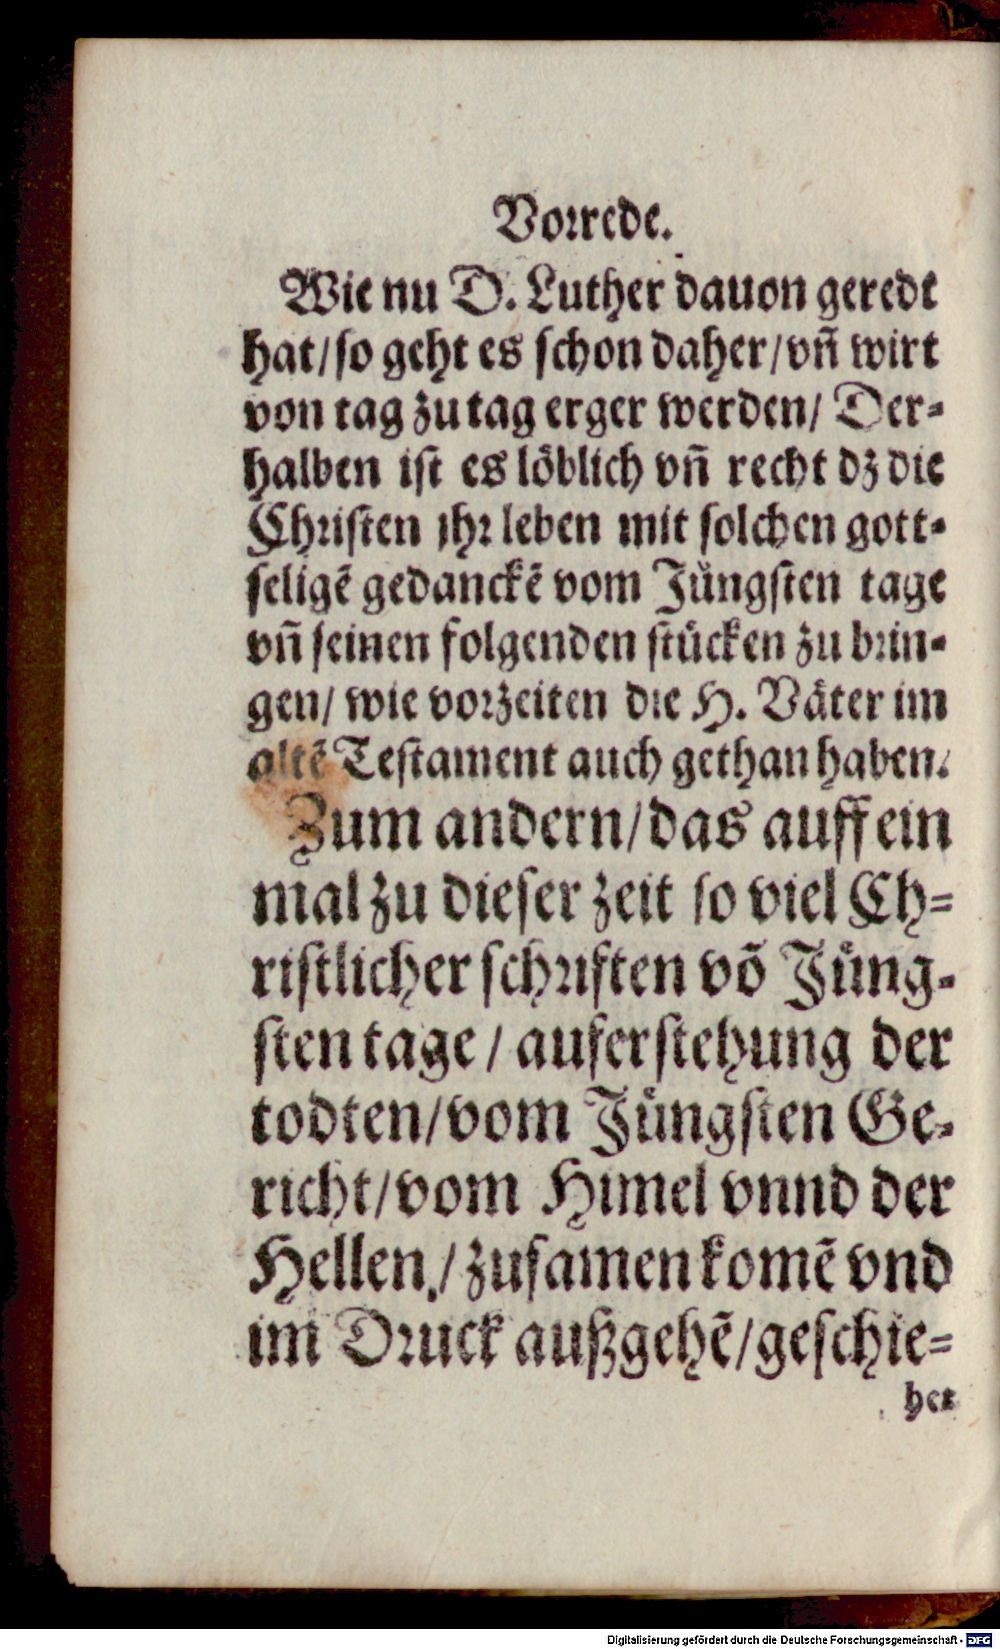 Vorrede.
Wie nu D. Luther dauon geredt
hat/ so geht es schon daher/ vñ wirt
von tag zu tag erger werden/ Der-
halben ist es löblich vñ recht dz die
Christen jhr leben mit solchen gott-
seligẽ gedanckẽ vom Jüngsten tage
vñ seinen folgenden stücken zu brin-
gen/ wie vorzeiten die H. Väter im
altẽ Testament auch gethan haben.
Zum andern/ das auff ein
mal zu dieser zeit so viel Ch-
ristlicher schriften võ Jüng-
sten tage / auferstehung der
todten/ vom Jüngsten Ge-
richt/ vom Himel vnnd der
Hellen/ zusamen komẽ vnd
im Druck außgehẽ/ geschie-
het
Digitalisierung gefördert durch die Deutsche Forschungsgemeinschaft - DFG